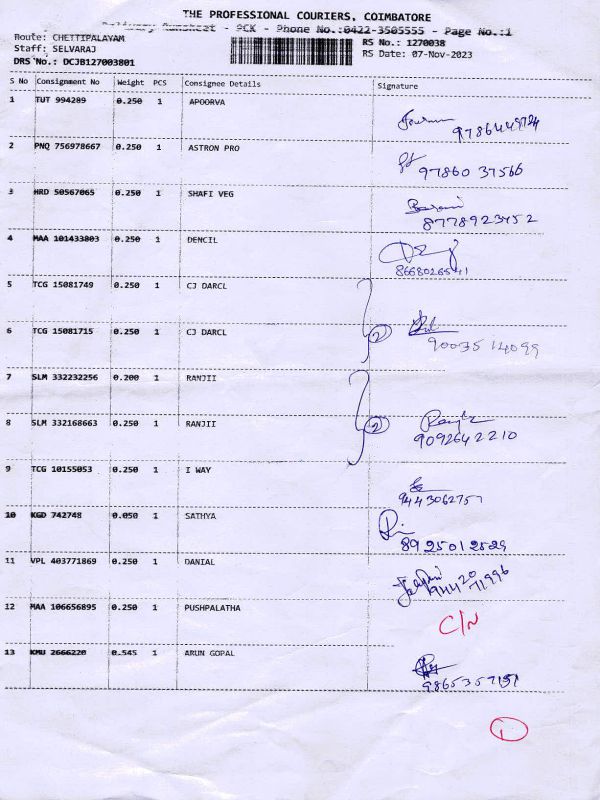 THE PROFESSIONAL COURIERS, COIMBATORE
Delivery Runsheet - PCK - Phone No.:0422-3505555 - Page No.:1
Route: CHETTIPALAYAM
RS No.: 1270038
Staff: SELVARAJ
RS Date: 07-Nov-2023
DRS No.: DCJB127003801
S No Consignment No Weight PCS Consignee Details Signature
1 TUT 994289 0.250 1 APOORVA
2 PNQ 756978667 0.250 1 ASTRON PRO
97860 37566
3 HRD 50567065 0.250 1 SHAFI VEG
8778923452
4 MAA 101433803 0.250 1 DENCIL
8668026541
5 TCG 15081749 0.250 1 CJ DARCL
6 TCG 15081715 0.250 1 CJ DARCL
2
90035 14099
7 SLM 332232256 0.200 1 RANJII
8 SLM 332168663 0.250 1 RANJII
2
9092642210
9 TCG 10155053 0.250 1 I WAY
9443062757
10 KGD 742748 0.050 1 SATHYA
89 25012529
11 VPL 403771869 0.250 1 DANIAL
94420
71996
12 MAA 106656895 0.250 1 PUSHPALATHA
C/N
13 KMU 2666220 0.545 1 ARUN GOPAL
1